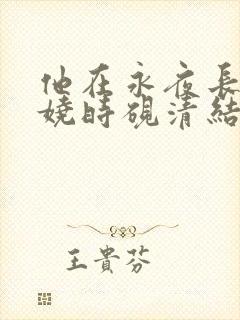 他在永夜長
嬈時硯清結
王貴芬